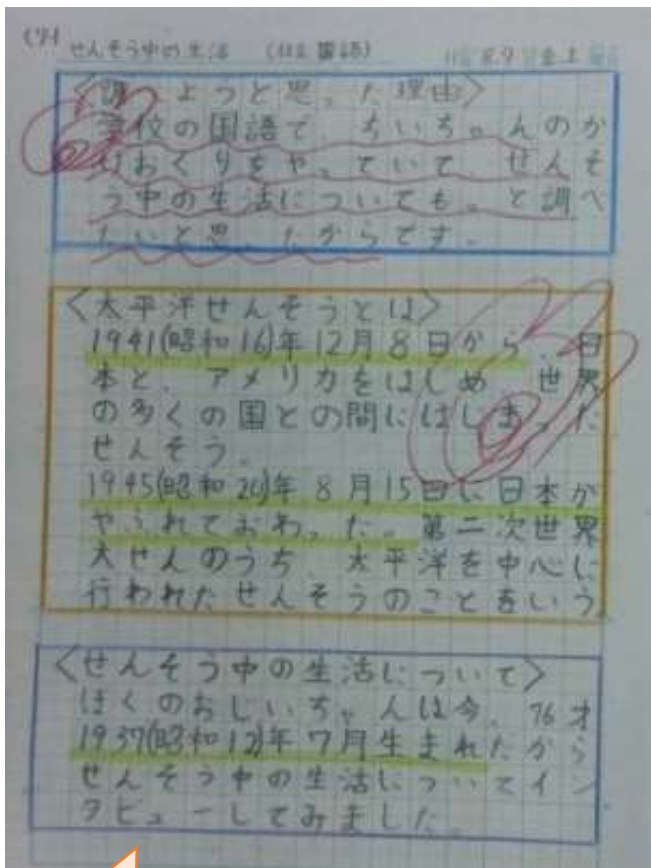 せんそう中の生活 (国語)
8.9 金
<調べようと思った理由>
学校の国語で、ちいちゃんのか
げおくりをやっていて、せんそ
う中の生活についてもっと調べ
たいと思ったからです。
<太平洋せんそうとは>
1941(昭和16)年12月8日から、日
本と、アメリカをはじめ、世界
の多くの国との間にはじまった
せんそう。
1945(昭和20)年8月15日に日本が
やぶれておわった。第二次世界
大せんのうち、太平洋を中心に
行われたせんそうのことをいう。
<せんそう中の生活について>
ぼくのおじいちゃんは今、76才
1937(昭和12)年7月生まれだから
せんそう中の生活についてイン
タビューしてみました。